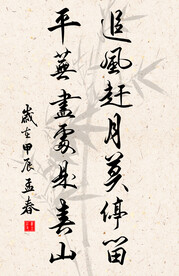 追風赶月莫停留
平蕪盡處是春山
歲在甲辰孟春